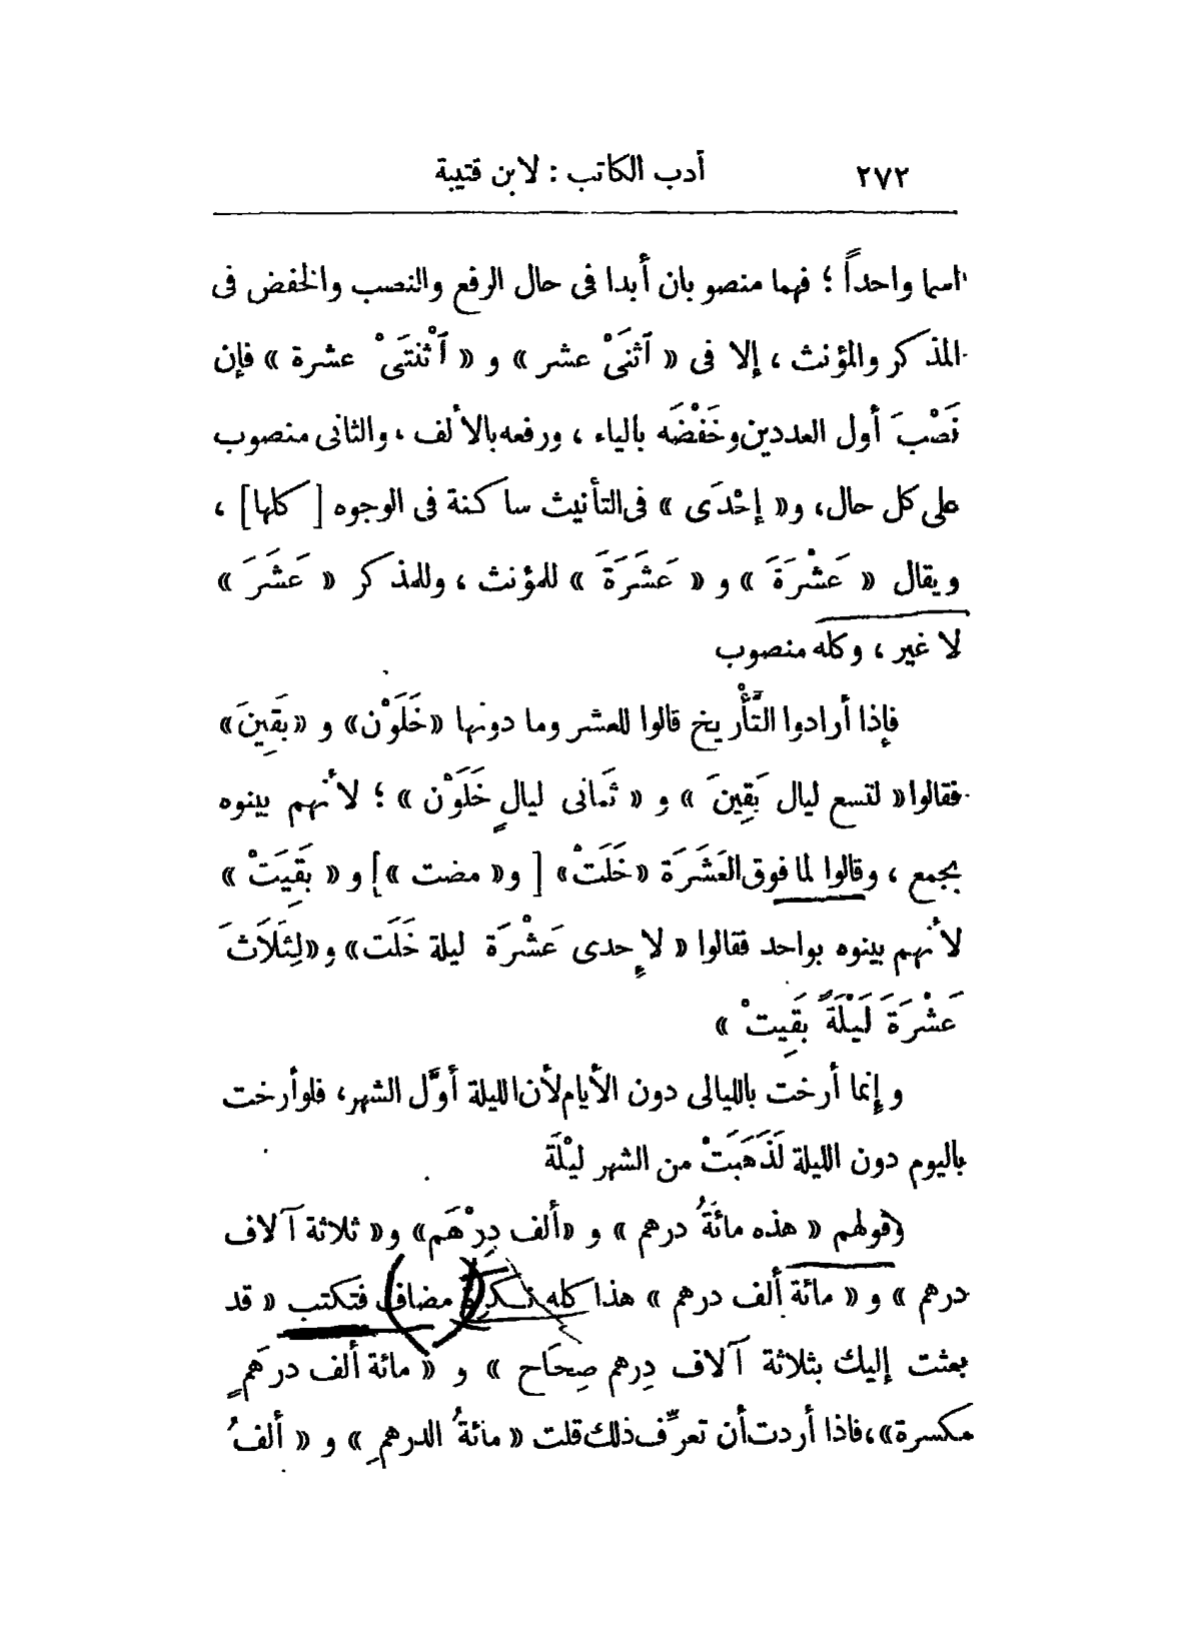 ٢٧٢
أدب الكاتب : لابن قتيبة
اسما واحداً ؛ فهما منصوبان أبدا فى حال الرفع والنصب والخفض فى
المذكر والمؤنث ، إلا فى « ٱثنَىْ عشر » و « ٱثْنتَىْ عشرة » فإن
نَصْبَ أول العددين وخَفْضَه بالياء ، ورفعه بالألف ، والثانى منصوب
على كل حال، و« إحْدَى » فى التأنيث ساكنة فى الوجوه [ كلها] ،
ويقال « عَشْرَةَ » و « عَشَرَةَ » للمؤنث ، وللمذكر « عَشَرَ »
لا غير ، وكله منصوب
فإذا أرادوا التَّأْريخ قالوا للعشر وما دونها «خَلَوْن» و «بَقِينَ»
فقالوا « لتسع ليال بَقِينَ » و « ثَمانى ليالٍ خَلَوْن » ؛ لأنهم بينوه
بجمع ، وقالوا لما فوق العَشَرَة «خَلَتْ» [ و« مضت »] و « بَقِيَتْ »
لأنهم بينوه بواحد فقالوا « لإحدى عَشْرَة ليلة خَلَت» و«لِثَلَاثَ
عَشْرَةَ لَيْلَةً بَقِيتْ »
وإنما أرخت بالليالى دون الأيام لأن الليلة أوَّل الشهر، فلو أرخت
باليوم دون الليلة لَذَهَبَتْ من الشهر ليْلَة
وقولهم « هذه مائَةُ درهم » و «ألف دِرْهَم» و« ثلاثة آلاف
درهم » و « مائة ألف درهم » هذا كله نكرة مضاف فتكتب « قد
بعثت إليك بثلاثة آلاف دِرهم صِحَاح » و « مائة ألف درهَمٍ
مكسرة»، فاذا أردت أن تعرِّف ذلك قلت « مائةُ الدرهمِ » و « ألفُ